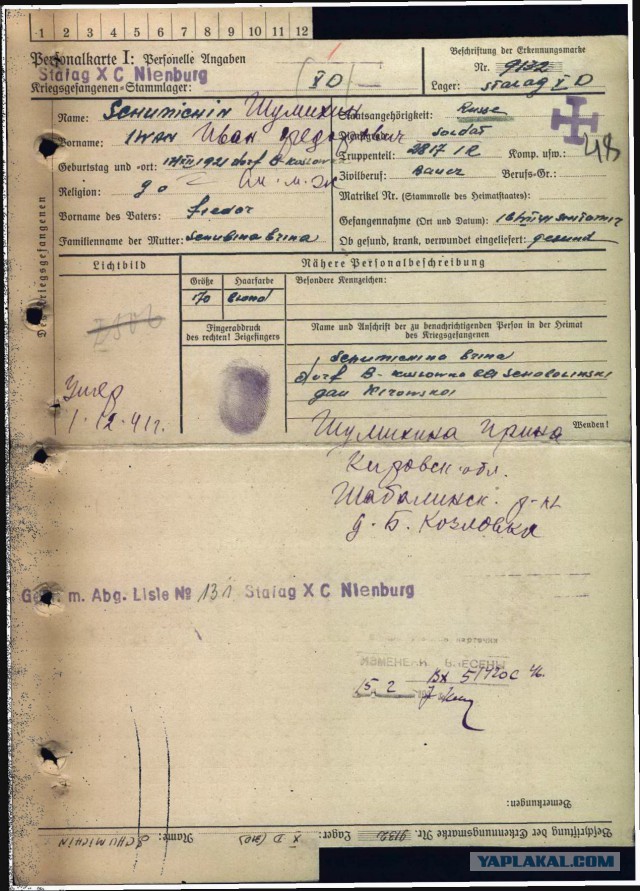 -1 2 3 4 5 6 7 8 9 10 11 12
Personalkarte I: Personelle Angaben
Stalag X C Nienburg
Kriegsgefangenen-Stammlager:
X D
Beschriftung der Erkennungsmarke
Nr. 9132
Lager: Stalag X D
Des Kriegsgefangenen
Name: Schumichin Шумихин
Vorname: Iwan Иван Федорович
Geburtstag und -ort: 1921 dorf B-
Religion: g o
Vorname des Vaters: Fiedor
Familienname der Mutter:
Staatsangehörigkeit: Russe
Dienstgrad: Soldat
Truppenteil: 2817 I R Komp. usw.:
48
Zivilberuf: Bauer Berufs-Gr.:
Matrikel Nr. (Stammrolle des Heimatstaates):
Gefangennahme (Ort und Datum):
Ob gesund, krank, verwundet eingeliefert: gesund
Lichtbild
Nähere Personalbeschreibung
Größe Haarfarbe Besondere Kennzeichen:
170 blond
Fingerabdruck
des rechten! Zeigefingers
Name und Anschrift der zu benachrichtigenden Person in der Heimat
des Kriegsgefangenen
Schumichina Erina
dorf B-
gau Kirowskoi
Умер
1.12.41г.
Wenden!
Шумихина Ирина
Кировск. обл.
Шабалинск. р-н
д. Б. Козловка
Gem. m. Abg. Liste № 131 Stalag X C Nienburg
ИЗМЕНЕНИЯ ВНЕСЕНЫ
Вх 51420с
15 2
Bemerkungen:
Beschriftung der Erkennungsmarke Nr. 9132 Lager: X D (310) Name: SCHUMICHIN
YAPLAKAL.COM